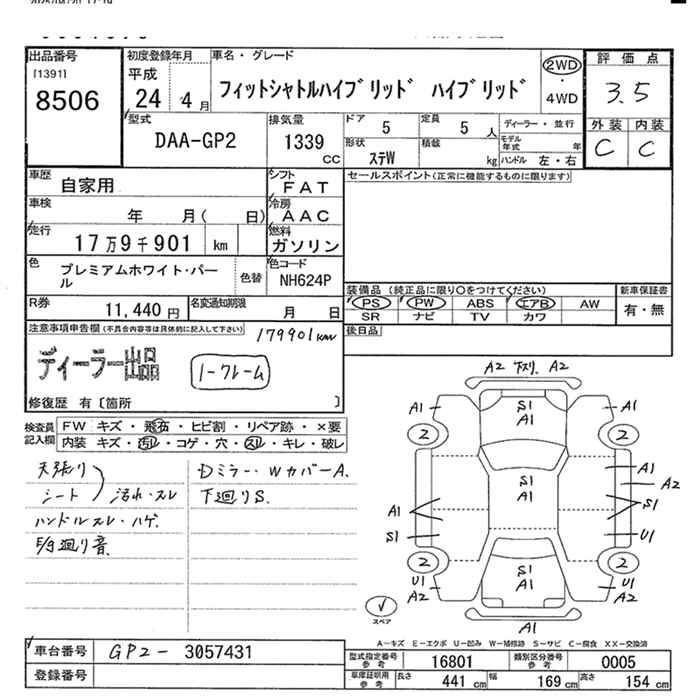 出品番号
[1391]
8506
初度登録年月
平成
24 年 4 月
車名・グレード
フィットシャトルハイブリッド ハイブリッド
2WD
・
4WD
評価点
3.5
外装 内装
C C
型式
DAA-GP2
排気量
1339
CC
ドア
5
定員
5 人
形状
ステW
積載
kg
ディーラー・並行
モデル
年式 年
ハンドル 左・右
車歴
自家用
シフト
FAT
セールスポイント(正常に機能するものに限ります)
車検
年 月( 日)
冷房
AAC
走行
17万9千901 km
燃料
ガソリン
色
プレミアムホワイト・パー
ル
色替
色コード
NH624P
R券
11,440 円
名変通知期限
月 日
装備品 (純正品に限り○をつけてください)
PS PW ABS エアB AW
SR ナビ TV カワ
新車保証書
有・無
後日品
注意事項申告欄(不具合内容等は具体的に記入して下さい)
179901km
ディーラー出品
1-クレーム
修復歴 有〔箇所 〕
検査員
記入欄
FW キズ・飛石・ヒビ割・リペア跡・×要
内装 キズ・汚れ・コゲ・穴・スレ・キレ・破レ
天張り
シート
汚れ・スレ
ハンドルスレ・ハゲ.
Dミラー・WカバーA.
下廻りS.
A2 下スリ. A2
A1 S1 A1
A1
2 2
A1
S1
A1
A2
A1 S1
S1 U1
2 2
U1 S1 U1
A2 A1 A2
A1
スペア
A-キズ E-エクボ U-凹み W-補修跡 S-サビ C-腐食 XX-交換済
車台番号
GP2- 3057431
登録番号
型式指定番号
参考
16801
類別区分番号
参考
0005
車庫証明用
参考
長さ
441 cm
幅
169 cm
高さ
154 cm